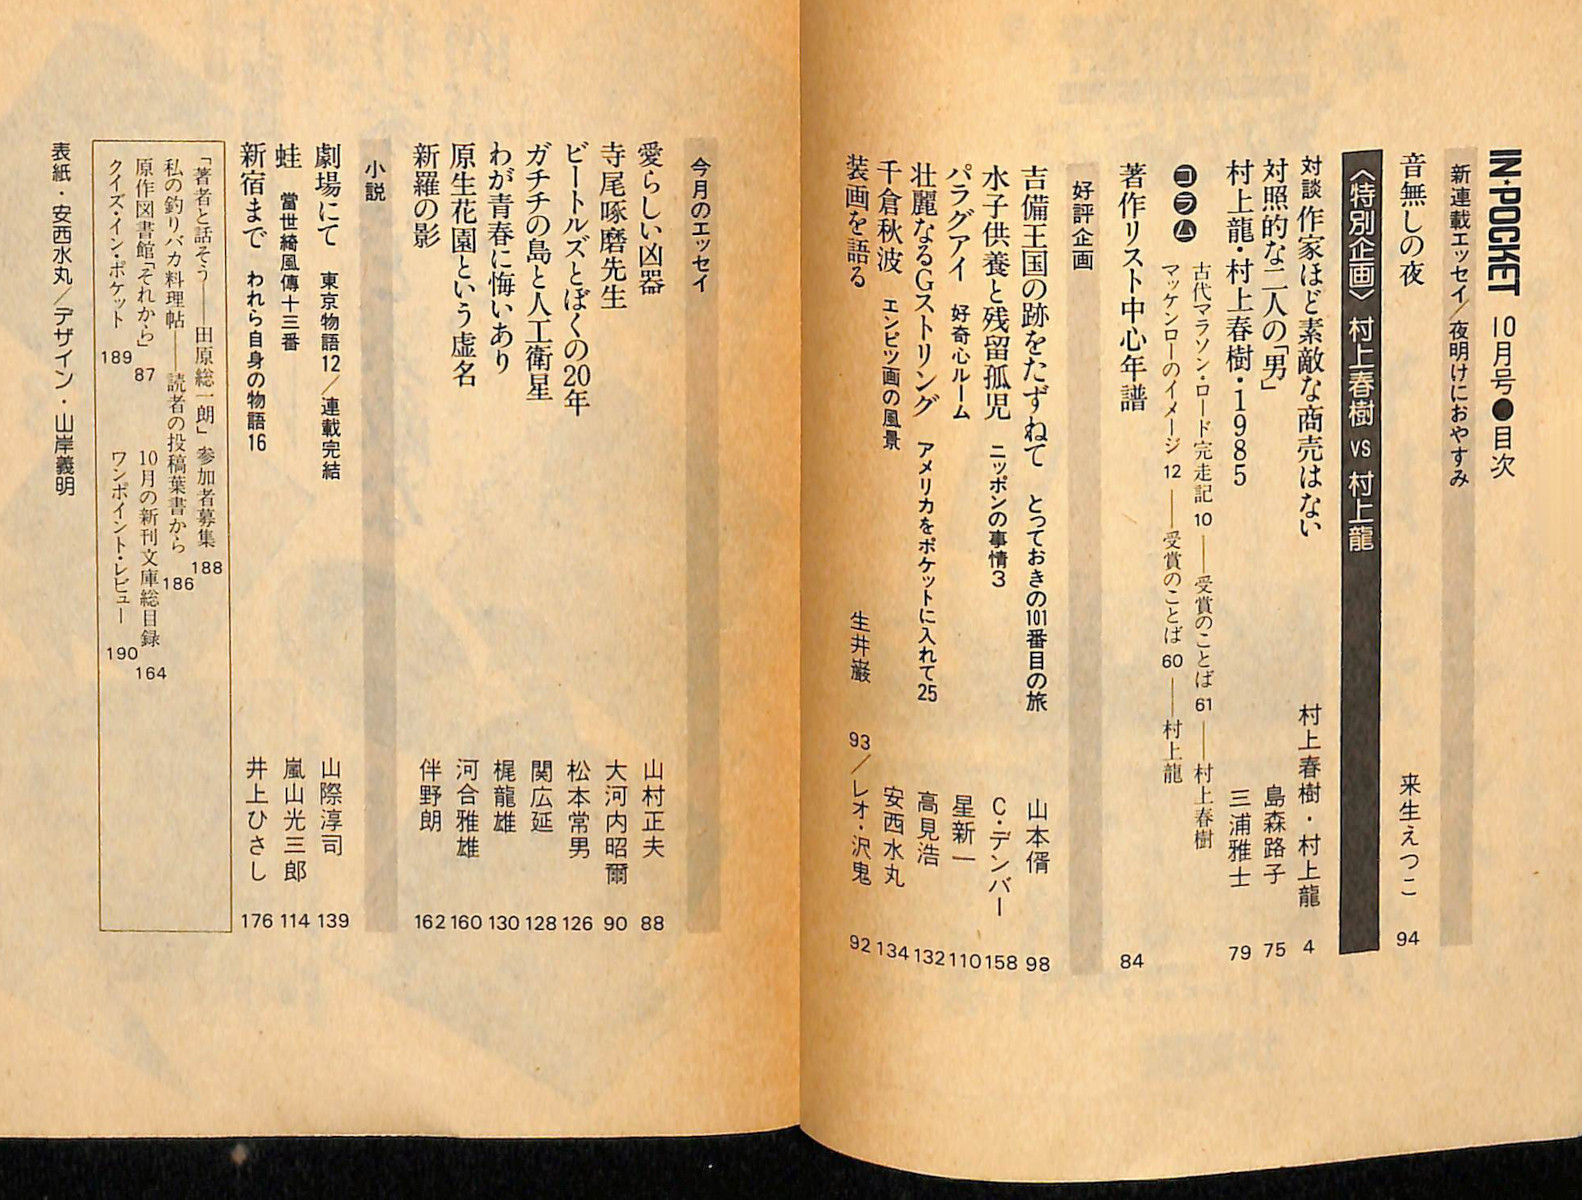 IN★POCKET 10月号●目次
新連載エッセイ／夜明けにおやすみ
音無しの夜 来生えつこ 94
〈特別企画〉村上春樹 VS 村上龍
対談 作家ほど素敵な商売はない 村上春樹・村上龍 4
対照的な二人の「男」 島森路子 75
村上龍・村上春樹・1985 三浦雅士 79
コラム
古代マラソン・ロード完走記 10 ── 受賞のことば 61 ── 村上春樹
マッケンローのイメージ 12 ── 受賞のことば 60 ── 村上龍
著作リスト中心年譜 84
好評企画
吉備王国の跡をたずねて とっておきの101番目の旅 山本偦 98
水子供養と残留孤児 ニッポンの事情3 C・デンバー 158
パラグアイ 好奇心ルーム 星新一 110
壮麗なるGストリング アメリカをポケットに入れて25 高見浩 132
千倉秋波 エンピツ画の風景 安西水丸 134
装画を語る 生井巌 93／レオ・沢鬼 92
今月のエッセイ
愛らしい凶器 山村正夫 88
寺尾啄磨先生 大河内昭爾 90
ビートルズとぼくの20年 松本常男 126
ガチチの島と人工衛星 関広延 128
わが青春に悔いあり 梶龍雄 130
原生花園という虚名 河合雅雄 160
新羅の影 伴野朗 162
小説
劇場にて 東京物語12／連載完結 山際淳司 139
蛙 當世綺風傳十三番 嵐山光三郎 114
新宿まで われら自身の物語16 井上ひさし 176
「著者と話そう──田原総一朗」参加者募集 188
私の釣りバカ料理帖──読者の投稿葉書から 186
原作図書館「それから」 87 10月の新刊文庫総目録 164
クイズ・イン・ポケット 189 ワンポイント・レビュー 190
表紙・安西水丸／デザイン・山岸義明